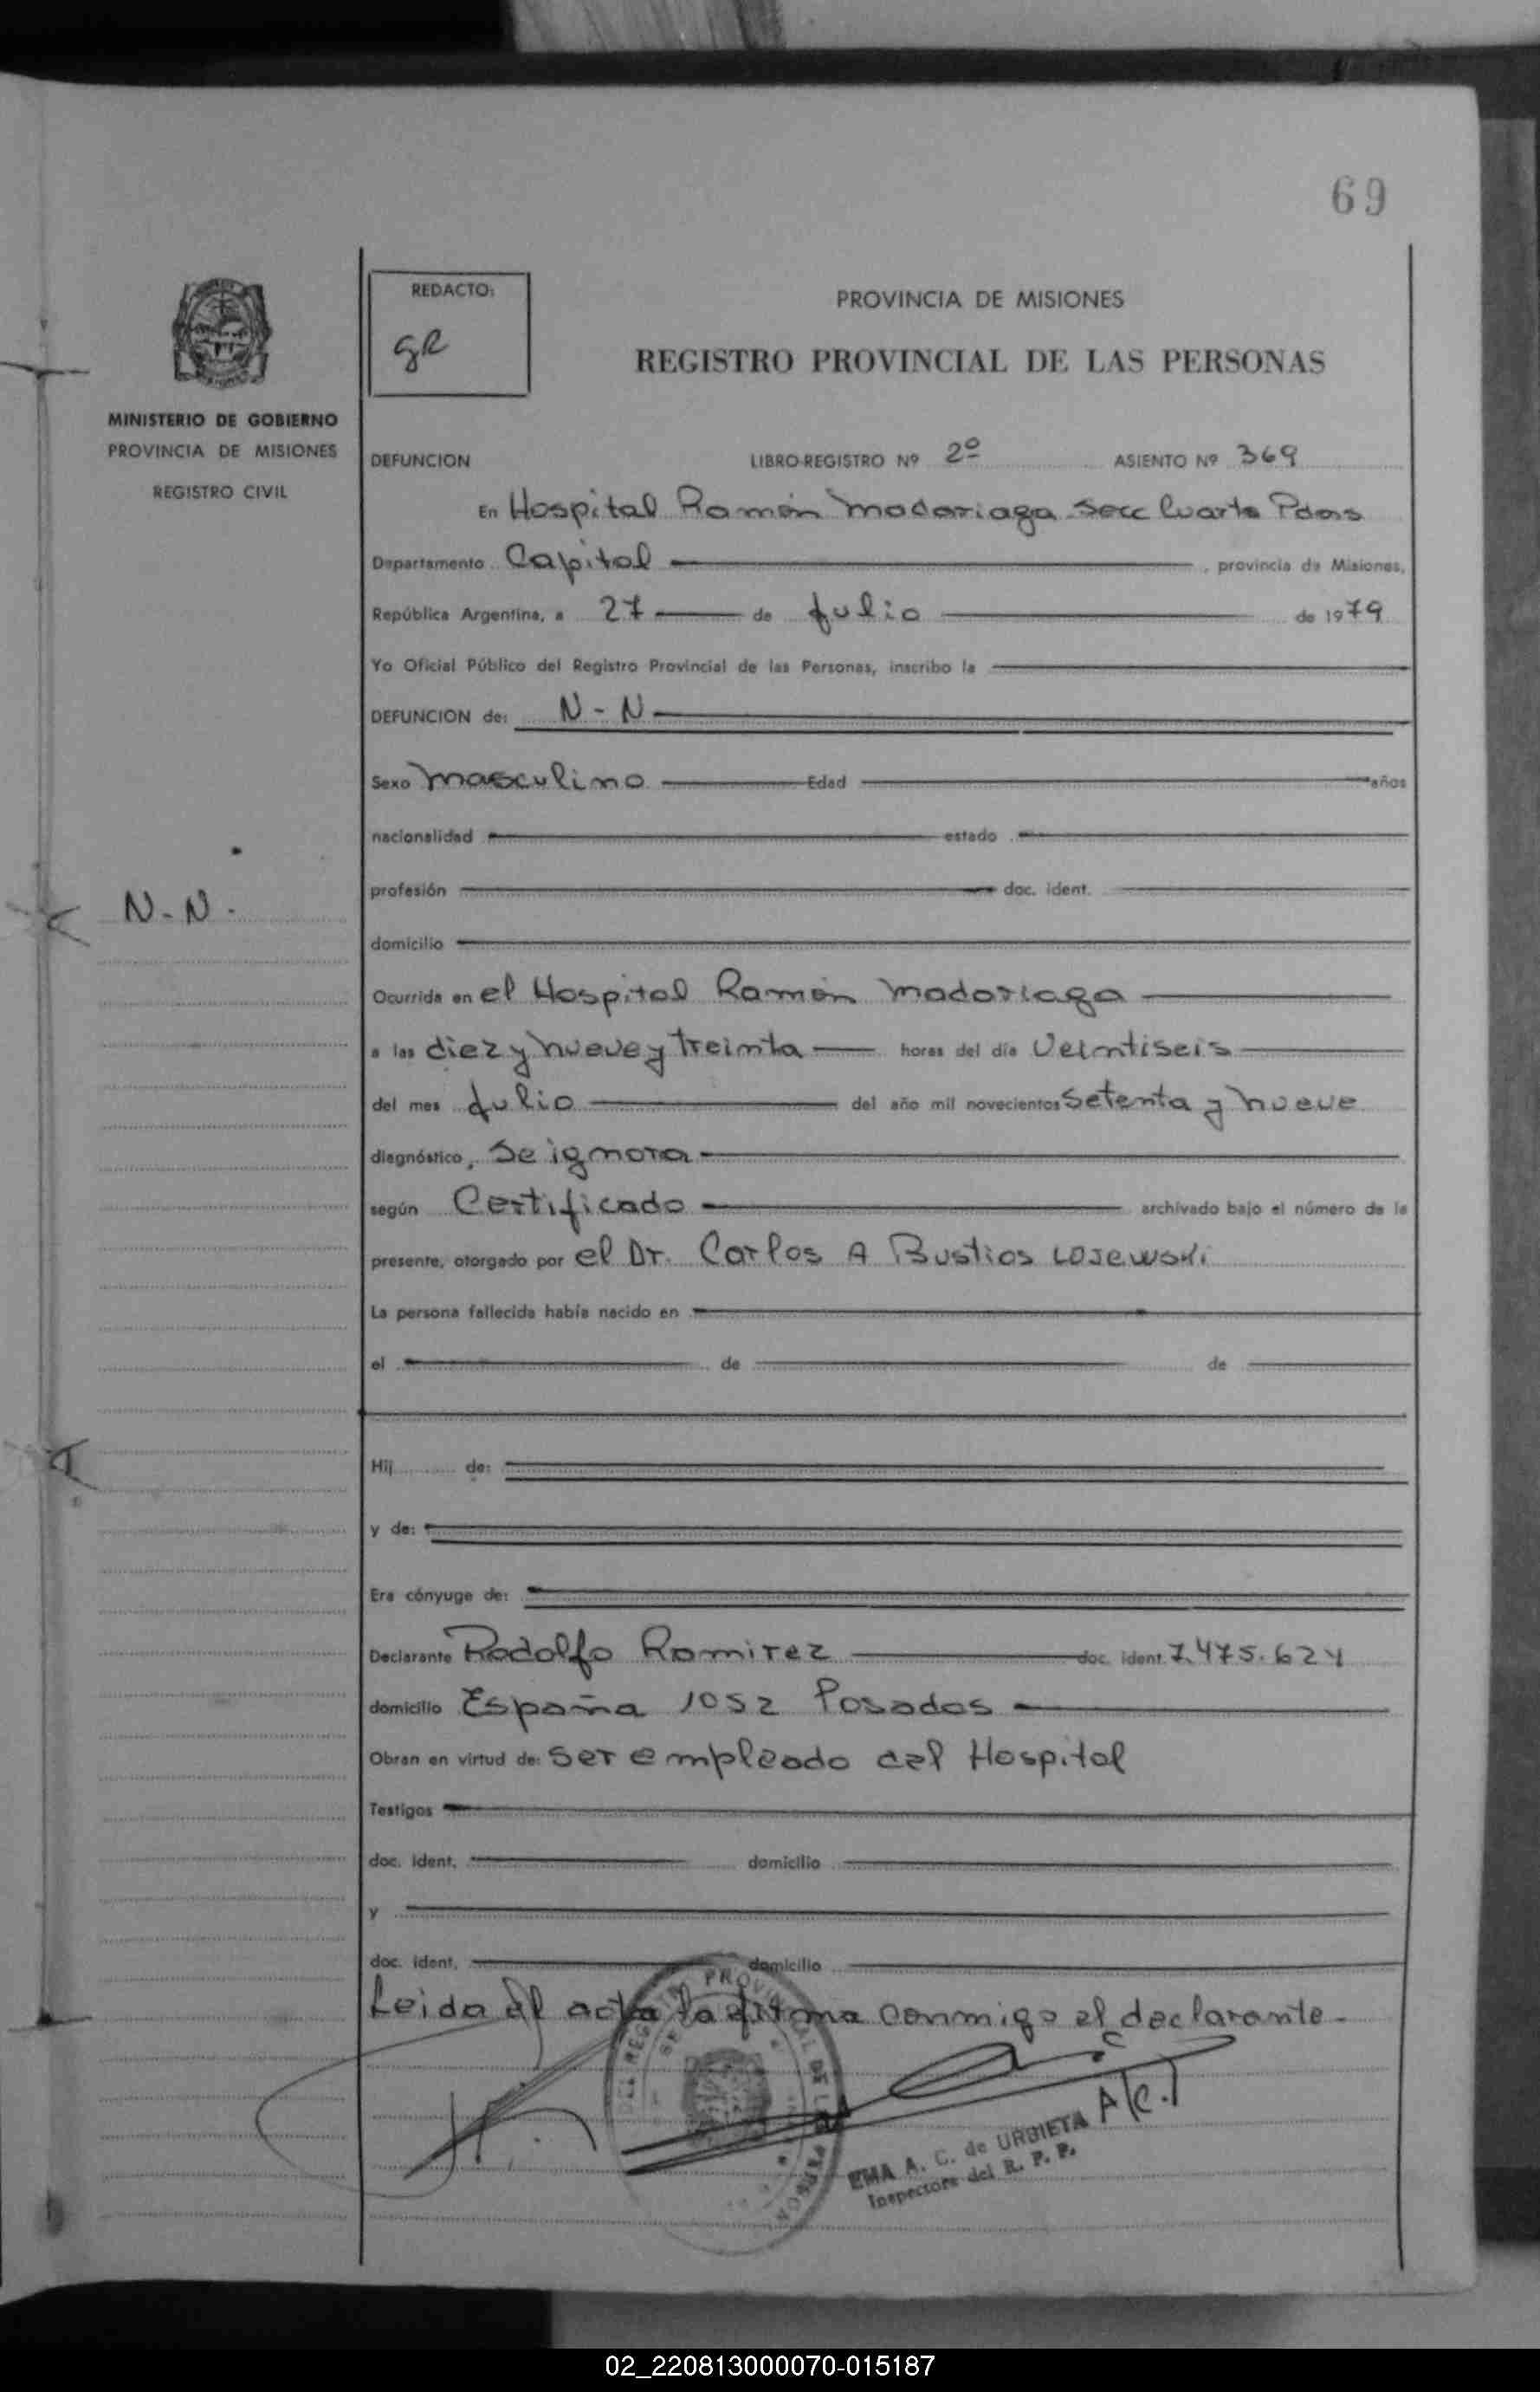 69
REDACTO:
gR
PROVINCIA DE MISIONES
REGISTRO PROVINCIAL DE LAS PERSONAS
MINISTERIO DE GOBIERNO
PROVINCIA DE MISIONES
REGISTRO CIVIL
DEFUNCION LIBRO-REGISTRO Nº 2º ASIENTO Nº 369
En Hospital Ramón Madariaga Secc Cuarta Pdas
Departamento Capital , provincia de Misiones,
República Argentina, a 27 de Julio de 1979
Yo Oficial Público del Registro Provincial de las Personas, inscribo la
DEFUNCION de: N - N
Sexo Masculino Edad años
nacionalidad estado
profesión doc. ident.
N - N.
domicilio
Ocurrida en el Hospital Ramón Madariaga
a las diez y nueve y treinta horas del día Veintiseis
del mes Julio del año mil novecientos Setenta y nueve
diagnóstico, Se ignora
según Certificado archivado bajo el número de la
presente, otorgado por el Dr. Carlos A Bustios Losewski
La persona fallecida había nacido en
el de de
Hij de:
y de:
Era cónyuge de:
Declarante Rodolfo Ramirez doc. ident. 7.475.624
domicilio España 1052 Posadas
Obran en virtud de: Ser empleado del Hospital
Testigos
doc. ident. domicilio
y
doc. ident. domicilio
Leida el acta la firma conmigo el declarante -
A/C.
EMA A. C. de URBIETA
Inspectora del R. P. P.
02_220813000070-015187